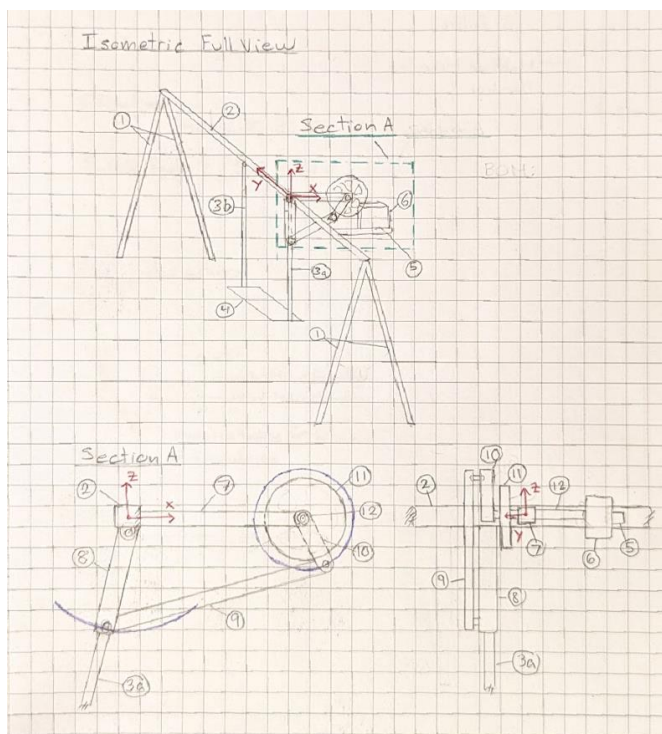 Isometric Full View
1
2
Section A
Z
Y
X
3b
6
5
3a
4
1
Section A
Z
2
X
7
11
12
10
8
9
3a
10
11
2
Z
12
Y
7
6
5
9
8
3a